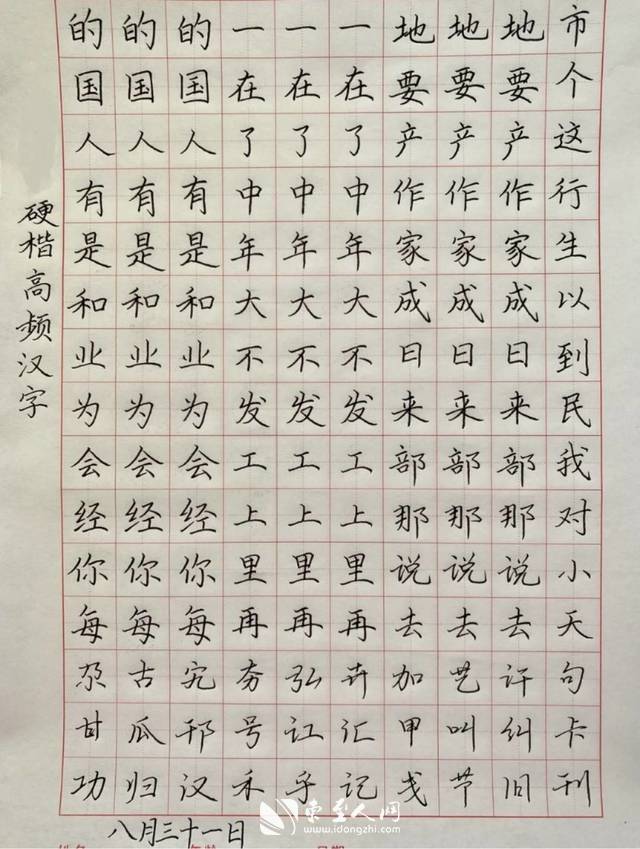 的的的一一一地地地市
国国国在在在要要要个
人人人了了了产产产这
有有有中中中作作作行
是是是年年年家家家生
和和和大大大成成成以
业业业不不不曰曰曰到
为为为发发发来来来民
会会会工工工部部部我
经经经上上上那那那对
你你你里里里说说说小
每每每再再再去去去天
尕古宄夯弘卉加艺讦句
甘瓜邗号讧汇甲叫纠卡
功归汉禾乎记戋节旧刊
硬楷高频汉字
八月三十一日
东至人网
www.idongzhi.com